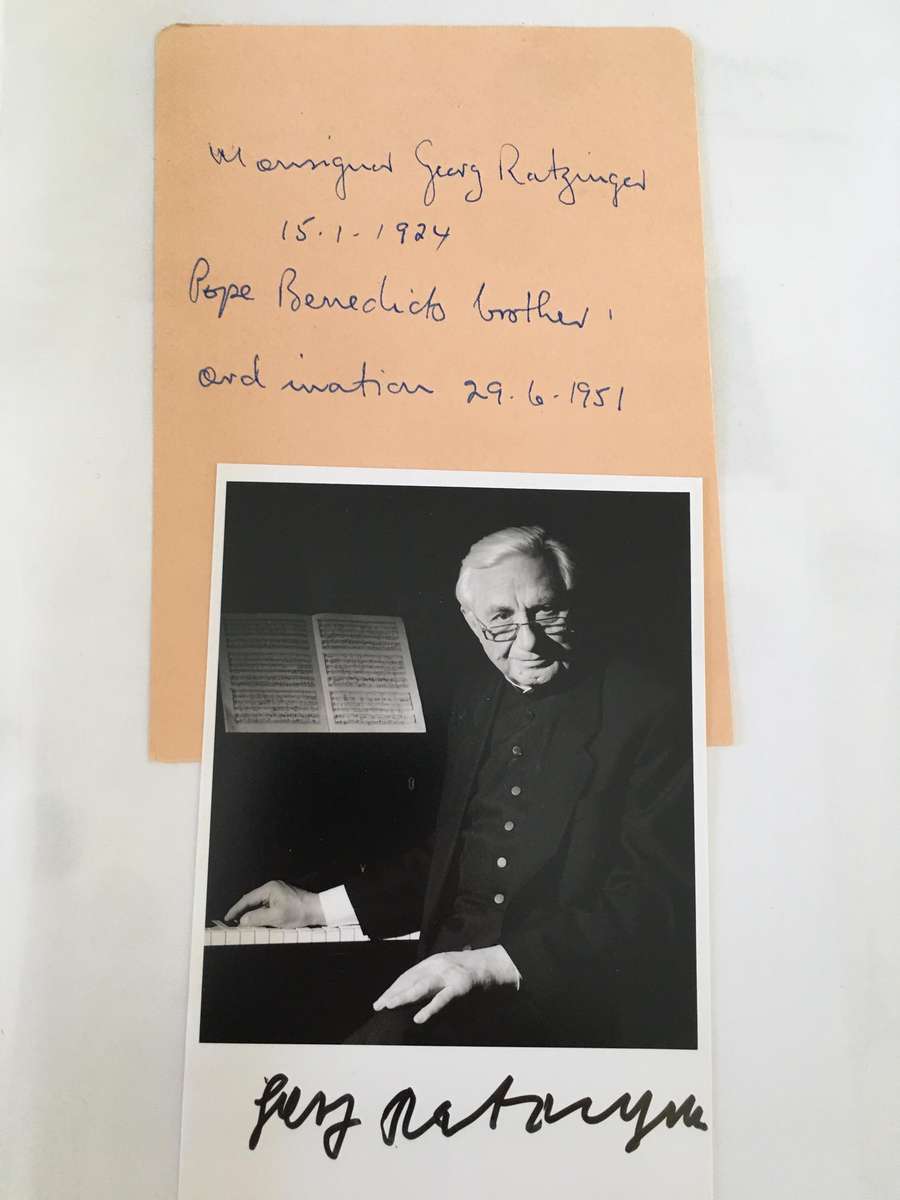 Monsignor Georg Ratzinger
15.1.1924
Pope Benedicts brother
ordination 29.6.1951
Georg Ratzinger